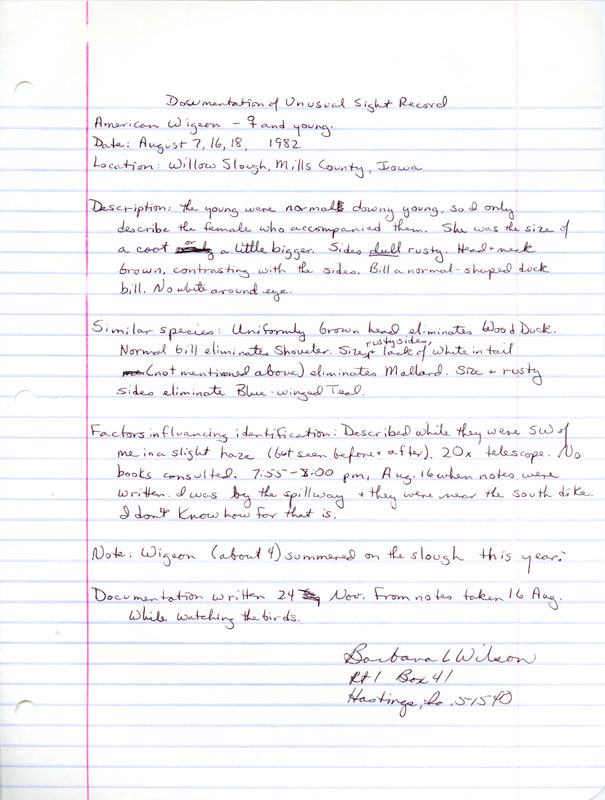 Documentation of Unusual Sight Record
American Wigeon - ♀ and young.
Date: August 7, 16, 18, 1982
Location: Willow Slough, Mills County, Iowa
Description: the young were normal downy young, so I only
describe the female who accompanied them. She was the size of
a coot or a little bigger. Sides dull rusty. Head + neck
brown, contrasting with the sides. Bill a normal-shaped duck
bill. No white around eye.
Similar species: Uniformly brown head eliminates Wood Duck.
Normal bill eliminates Shoveler. Size, rusty sides, + lack of white in tail
(not mentioned above) eliminates Mallard. Size + rusty
sides eliminate Blue-winged Teal.
Factors influencing identification: Described while they were SW of
me in a slight haze (but seen before + after). 20x telescope. No
books consulted. 7:55-8:00 pm, Aug. 16 when notes were
written. I was by the spillway + they were near the south dike.
I don't know how far that is.
Note: Wigeon (about 4) summered on the slough this year.
Documentation written 24 Nov. from notes taken 16 Aug.
while watching the birds.
Barbara L Wilson
Rt 1 Box 41
Hastings, Ia. 51540